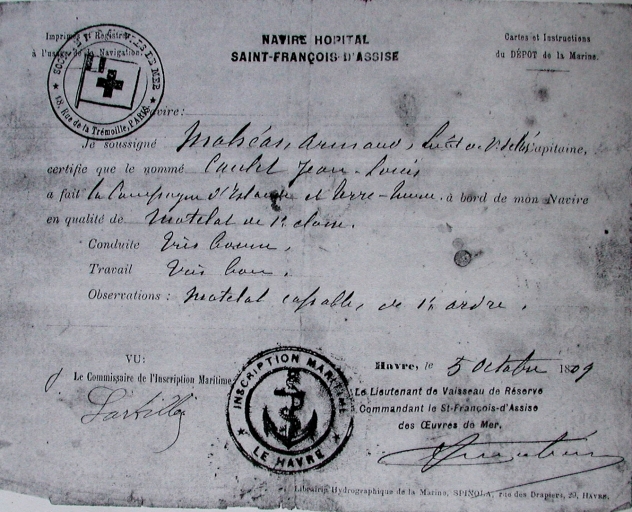 Imprimés et Registres
à l'usage de la Navigation
NAVIRE HOPITAL
SAINT-FRANÇOIS-D'ASSISE
Cartes et Instructions
du DÉPOT de la Marine.
SOCIÉTÉ DE MER
18, Rue de la Trémoille, PARIS
Navire:
Je soussigné Armand, Capitaine,
certifie que le nommé Jean-Louis
a fait la Campagne d'Islande et Terre-Neuve à bord de mon Navire
en qualité de Matelot de 1e classe.
Conduite Très bonne,
Travail Très bon,
Observations : Matelot capable, de 1r ordre.
VU:
Le Commissaire de l'Inscription Maritime
INSCRIPTION MARITIME
LE HAVRE
Havre, le 5 Octobre 1809
Le Lieutenant de Vaisseau de Réserve
Commandant le St-François-d'Assise
des Œuvres de Mer,
Librairie Hydrographique de la Marine, SPINOLA, rue des Drapiers, 29, HAVRE.